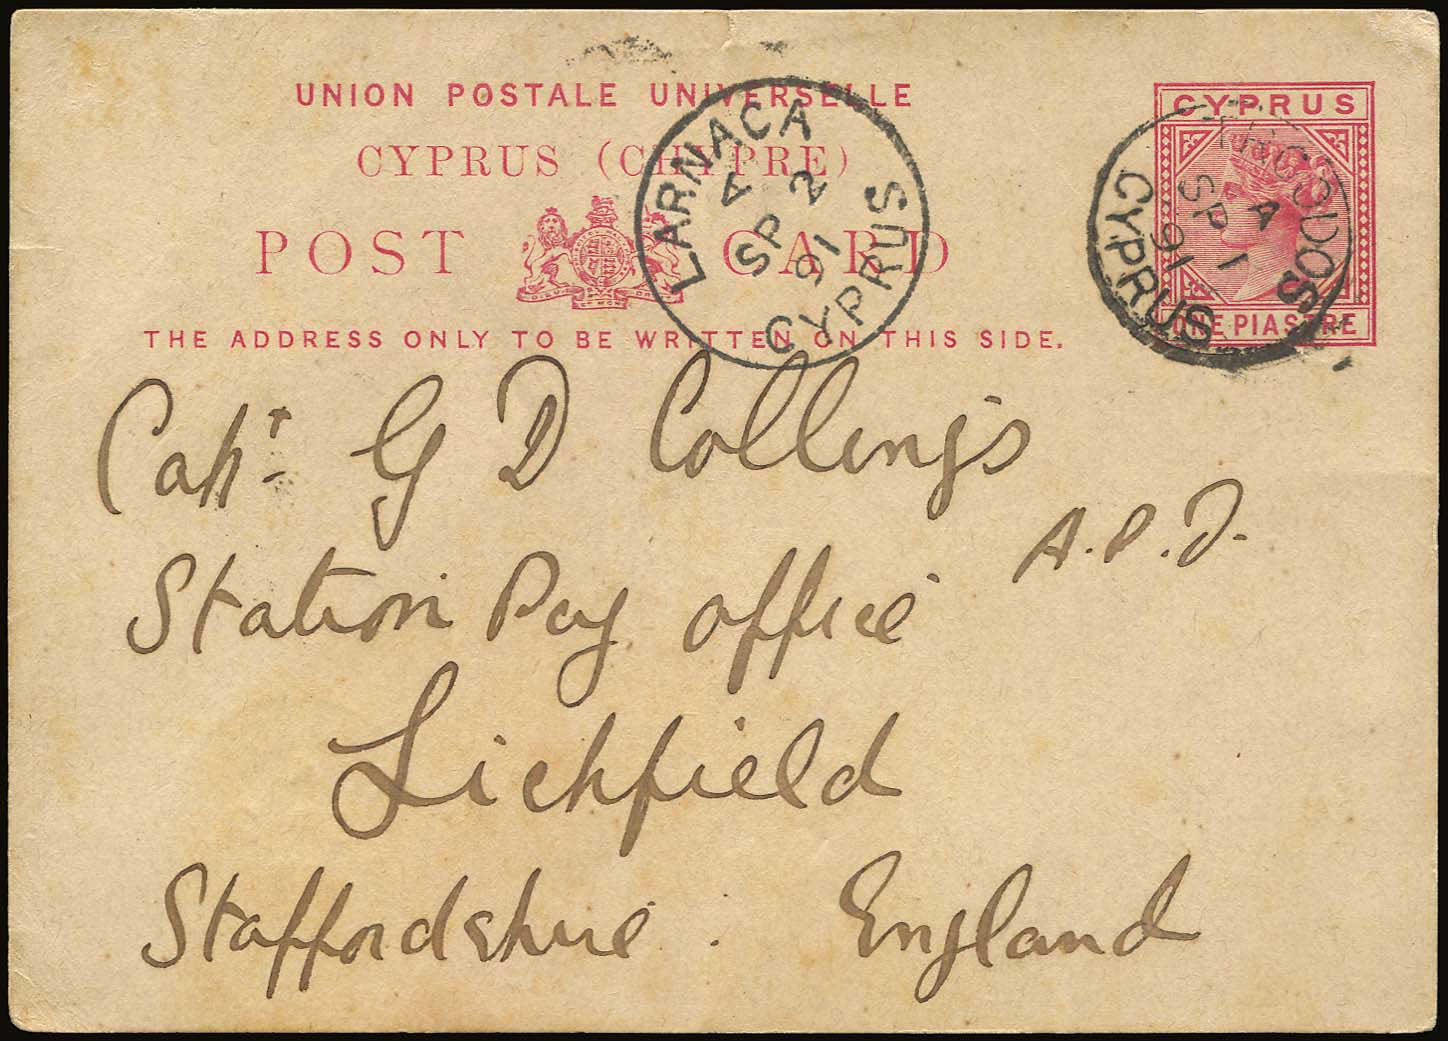 UNION POSTALE UNIVERSELLE
CYPRUS (CHYPRE)
POST CARD
THE ADDRESS ONLY TO BE WRITTEN ON THIS SIDE.
CYPRUS
ONE PIASTRE
LARNACA
A
SP 2
91
CYPRUS
A
SP 1
91
CYPRUS
Capt. G D Collings
A.P.D.
Station Pay office
Lichfield
Staffordshire. England